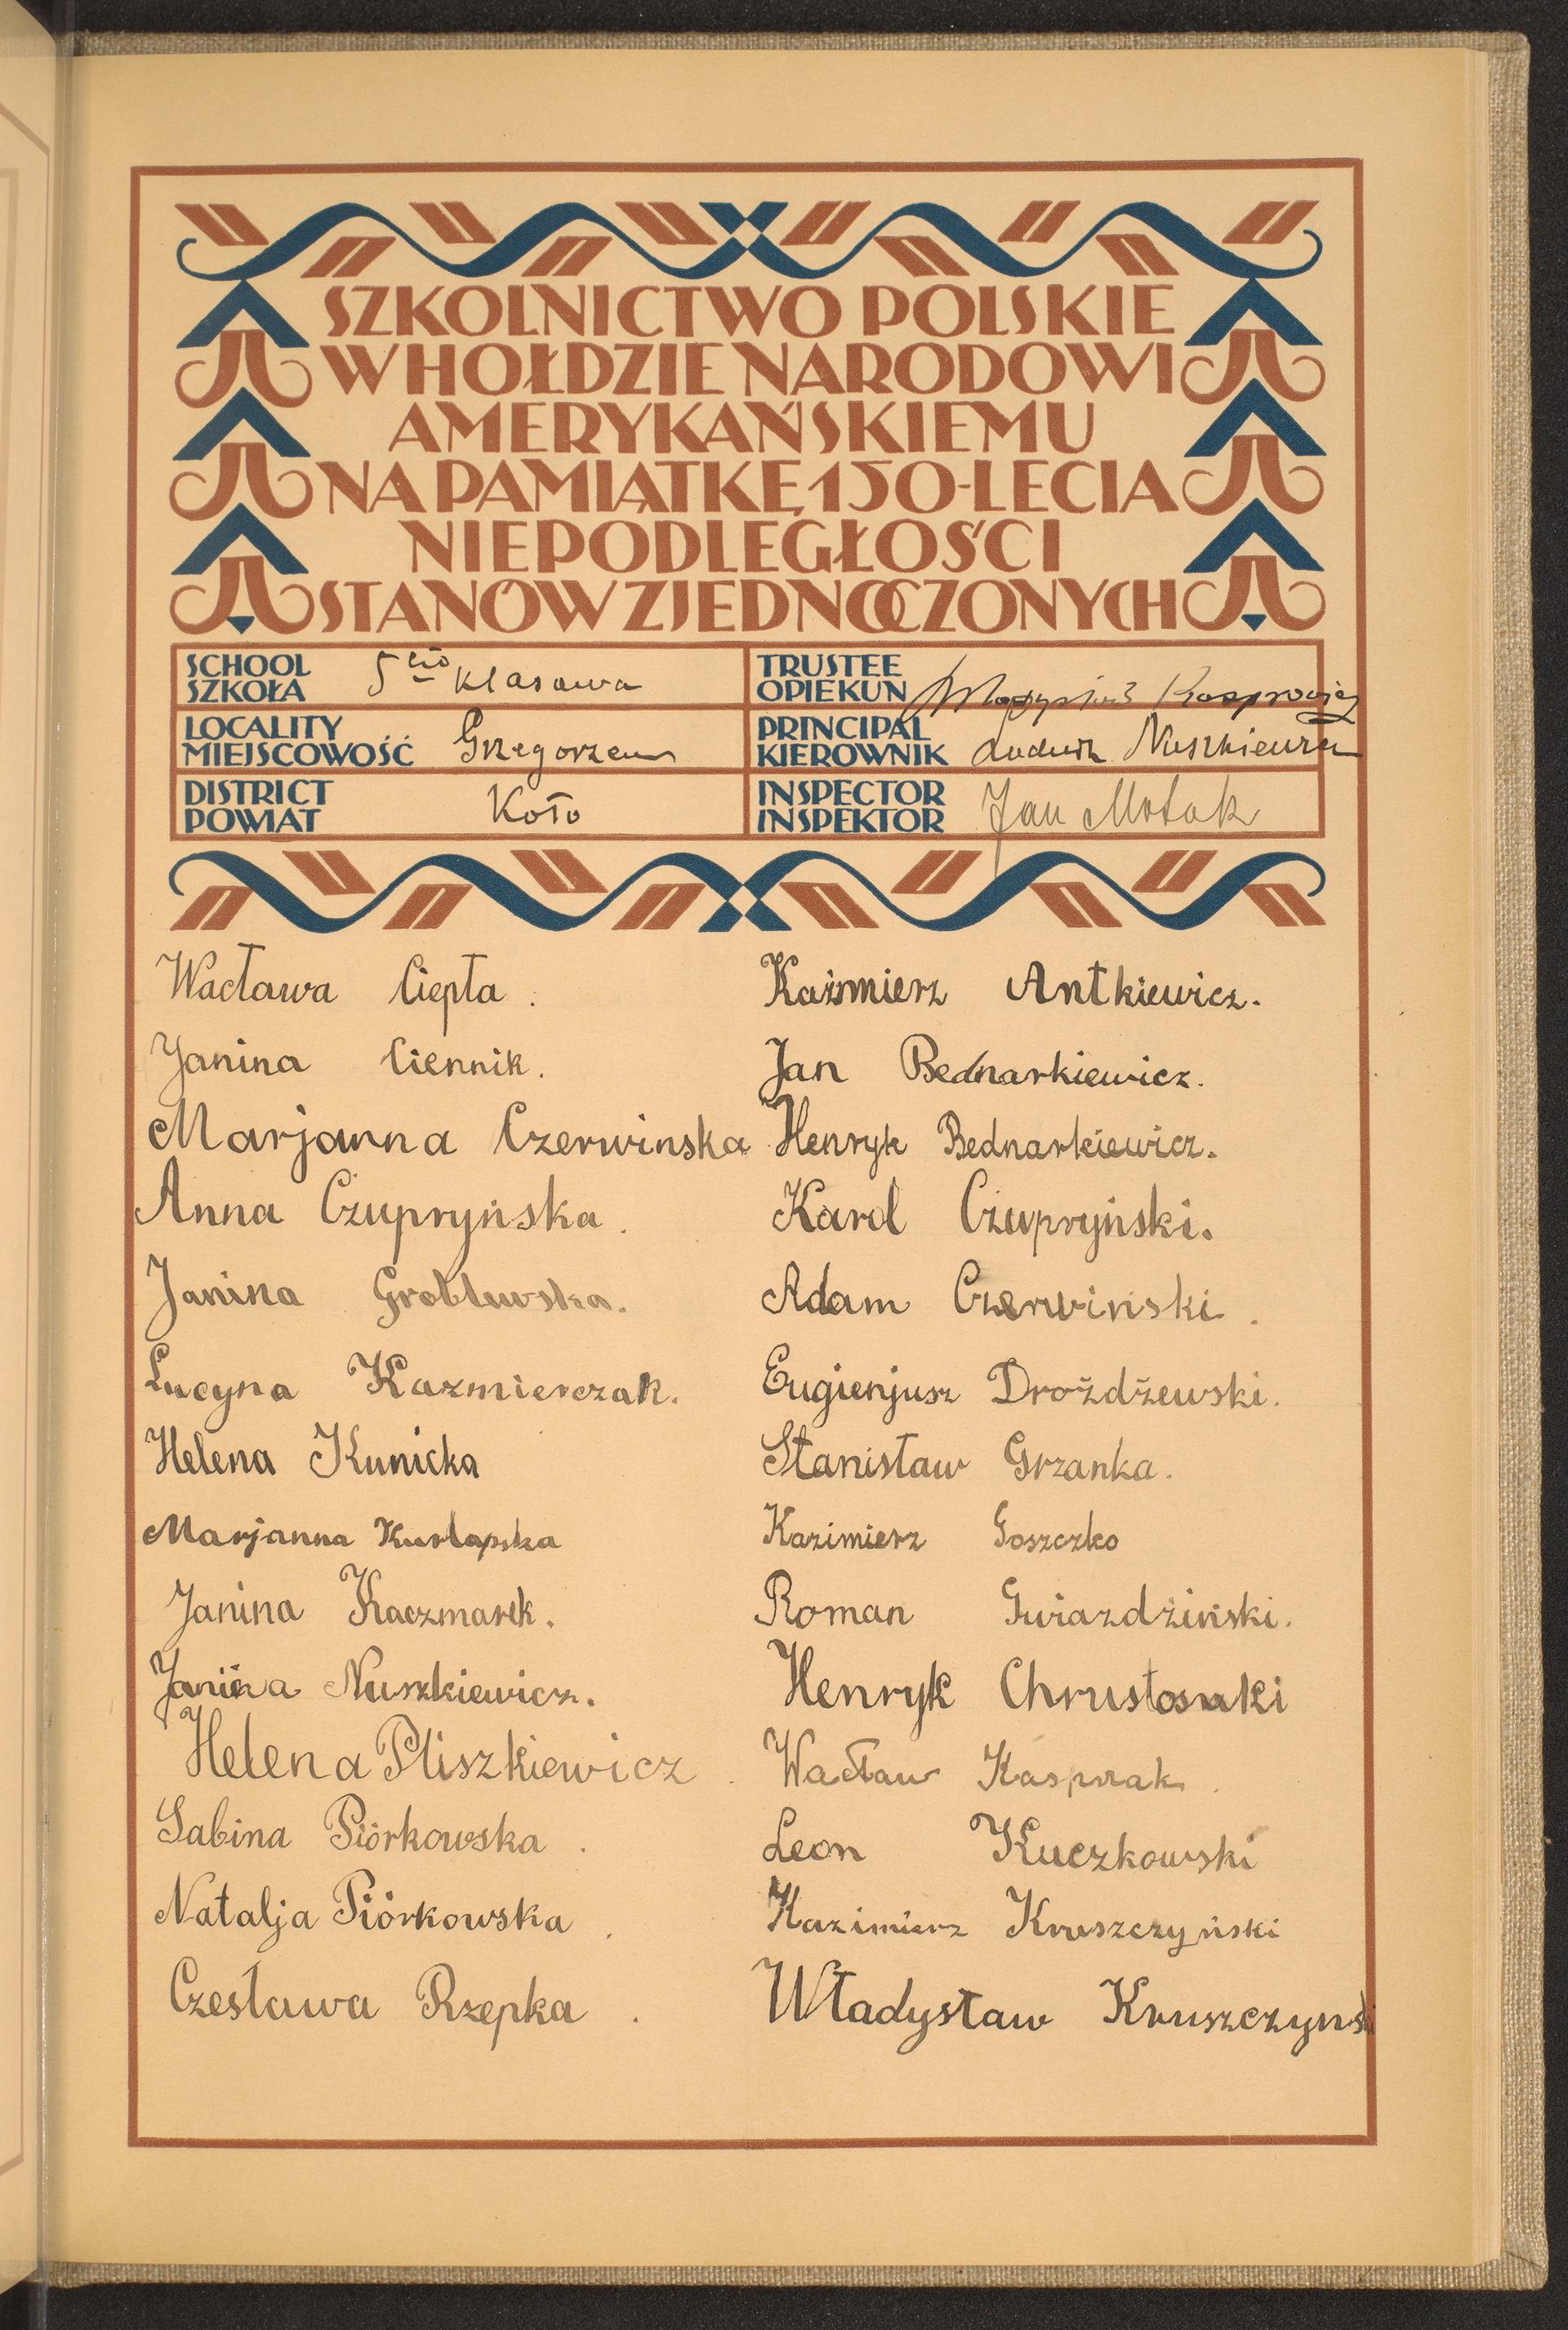 SZKOLNICTWO POLSKIE
W HOŁDZIE NARODOWI
AMERYKAŃSKIEMU
NA PAMIĄTKĘ 150-LECIA
NIEPODLEGŁOŚCI
STANÓW ZJEDNOCZONYCH
SCHOOL
SZKOŁA 5cio klasowa
LOCALITY
MIEJSCOWOŚĆ Grzegorzew
DISTRICT
POWIAT Koło
TRUSTEE
OPIEKUN
PRINCIPAL
KIEROWNIK Ludwik Nuszkiewicz
INSPECTOR
INSPEKTOR Jan Motak
Wacława Ciepła.
Janina Ciennik.
Marjanna Czerwinska
Anna Czupryńska.
Janina Groblewska.
Lucyna Kazmierczak.
Helena Kunicka
Marjanna
Janina Kaczmarek.
Janina Nuszkiewicz.
Helena Pliszkiewicz
Sabina Piórkowska.
Natalja Piórkowska.
Czesława Rzepka.
Kaźmierz Antkiewicz.
Jan Bednarkiewicz.
Henryk Bednarkiewicz.
Karol Czupryński.
Adam Czerwiński.
Eugienjusz Drożdżewski.
Stanisław Grzanka.
Kazimierz Goszczko
Roman Gwiazdźiński.
Henryk
Wacław Kasprzak.
Leon Kuczkowski
Kazimierz Kruszczyński
Władysław Kruszczynski